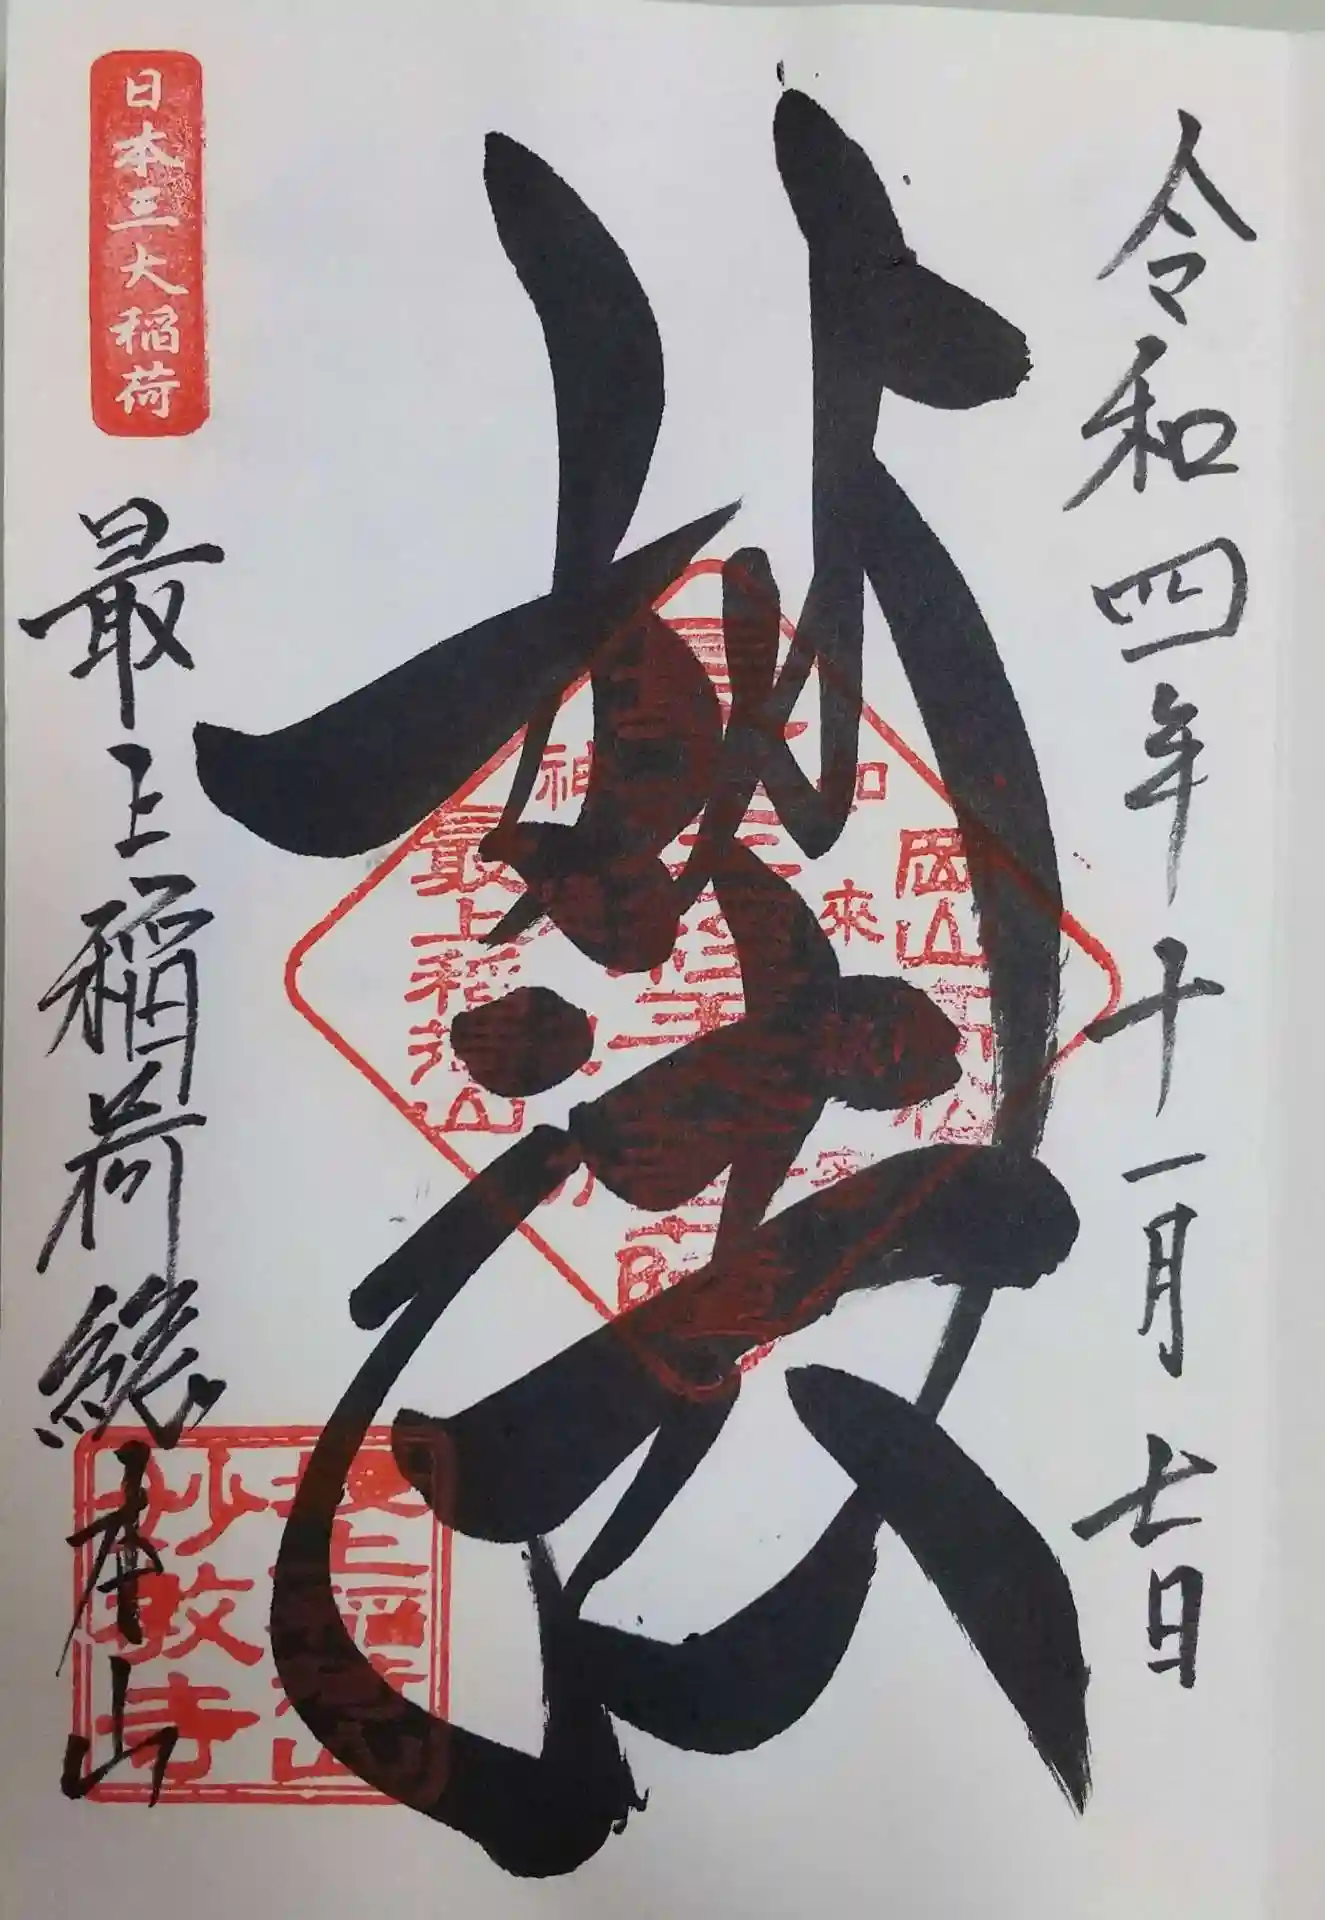 令和四年十一月七日
妙法
日本三大稲荷
最上稲荷総本山
岡山
來
最上稲荷山
最上稲荷山
妙教寺